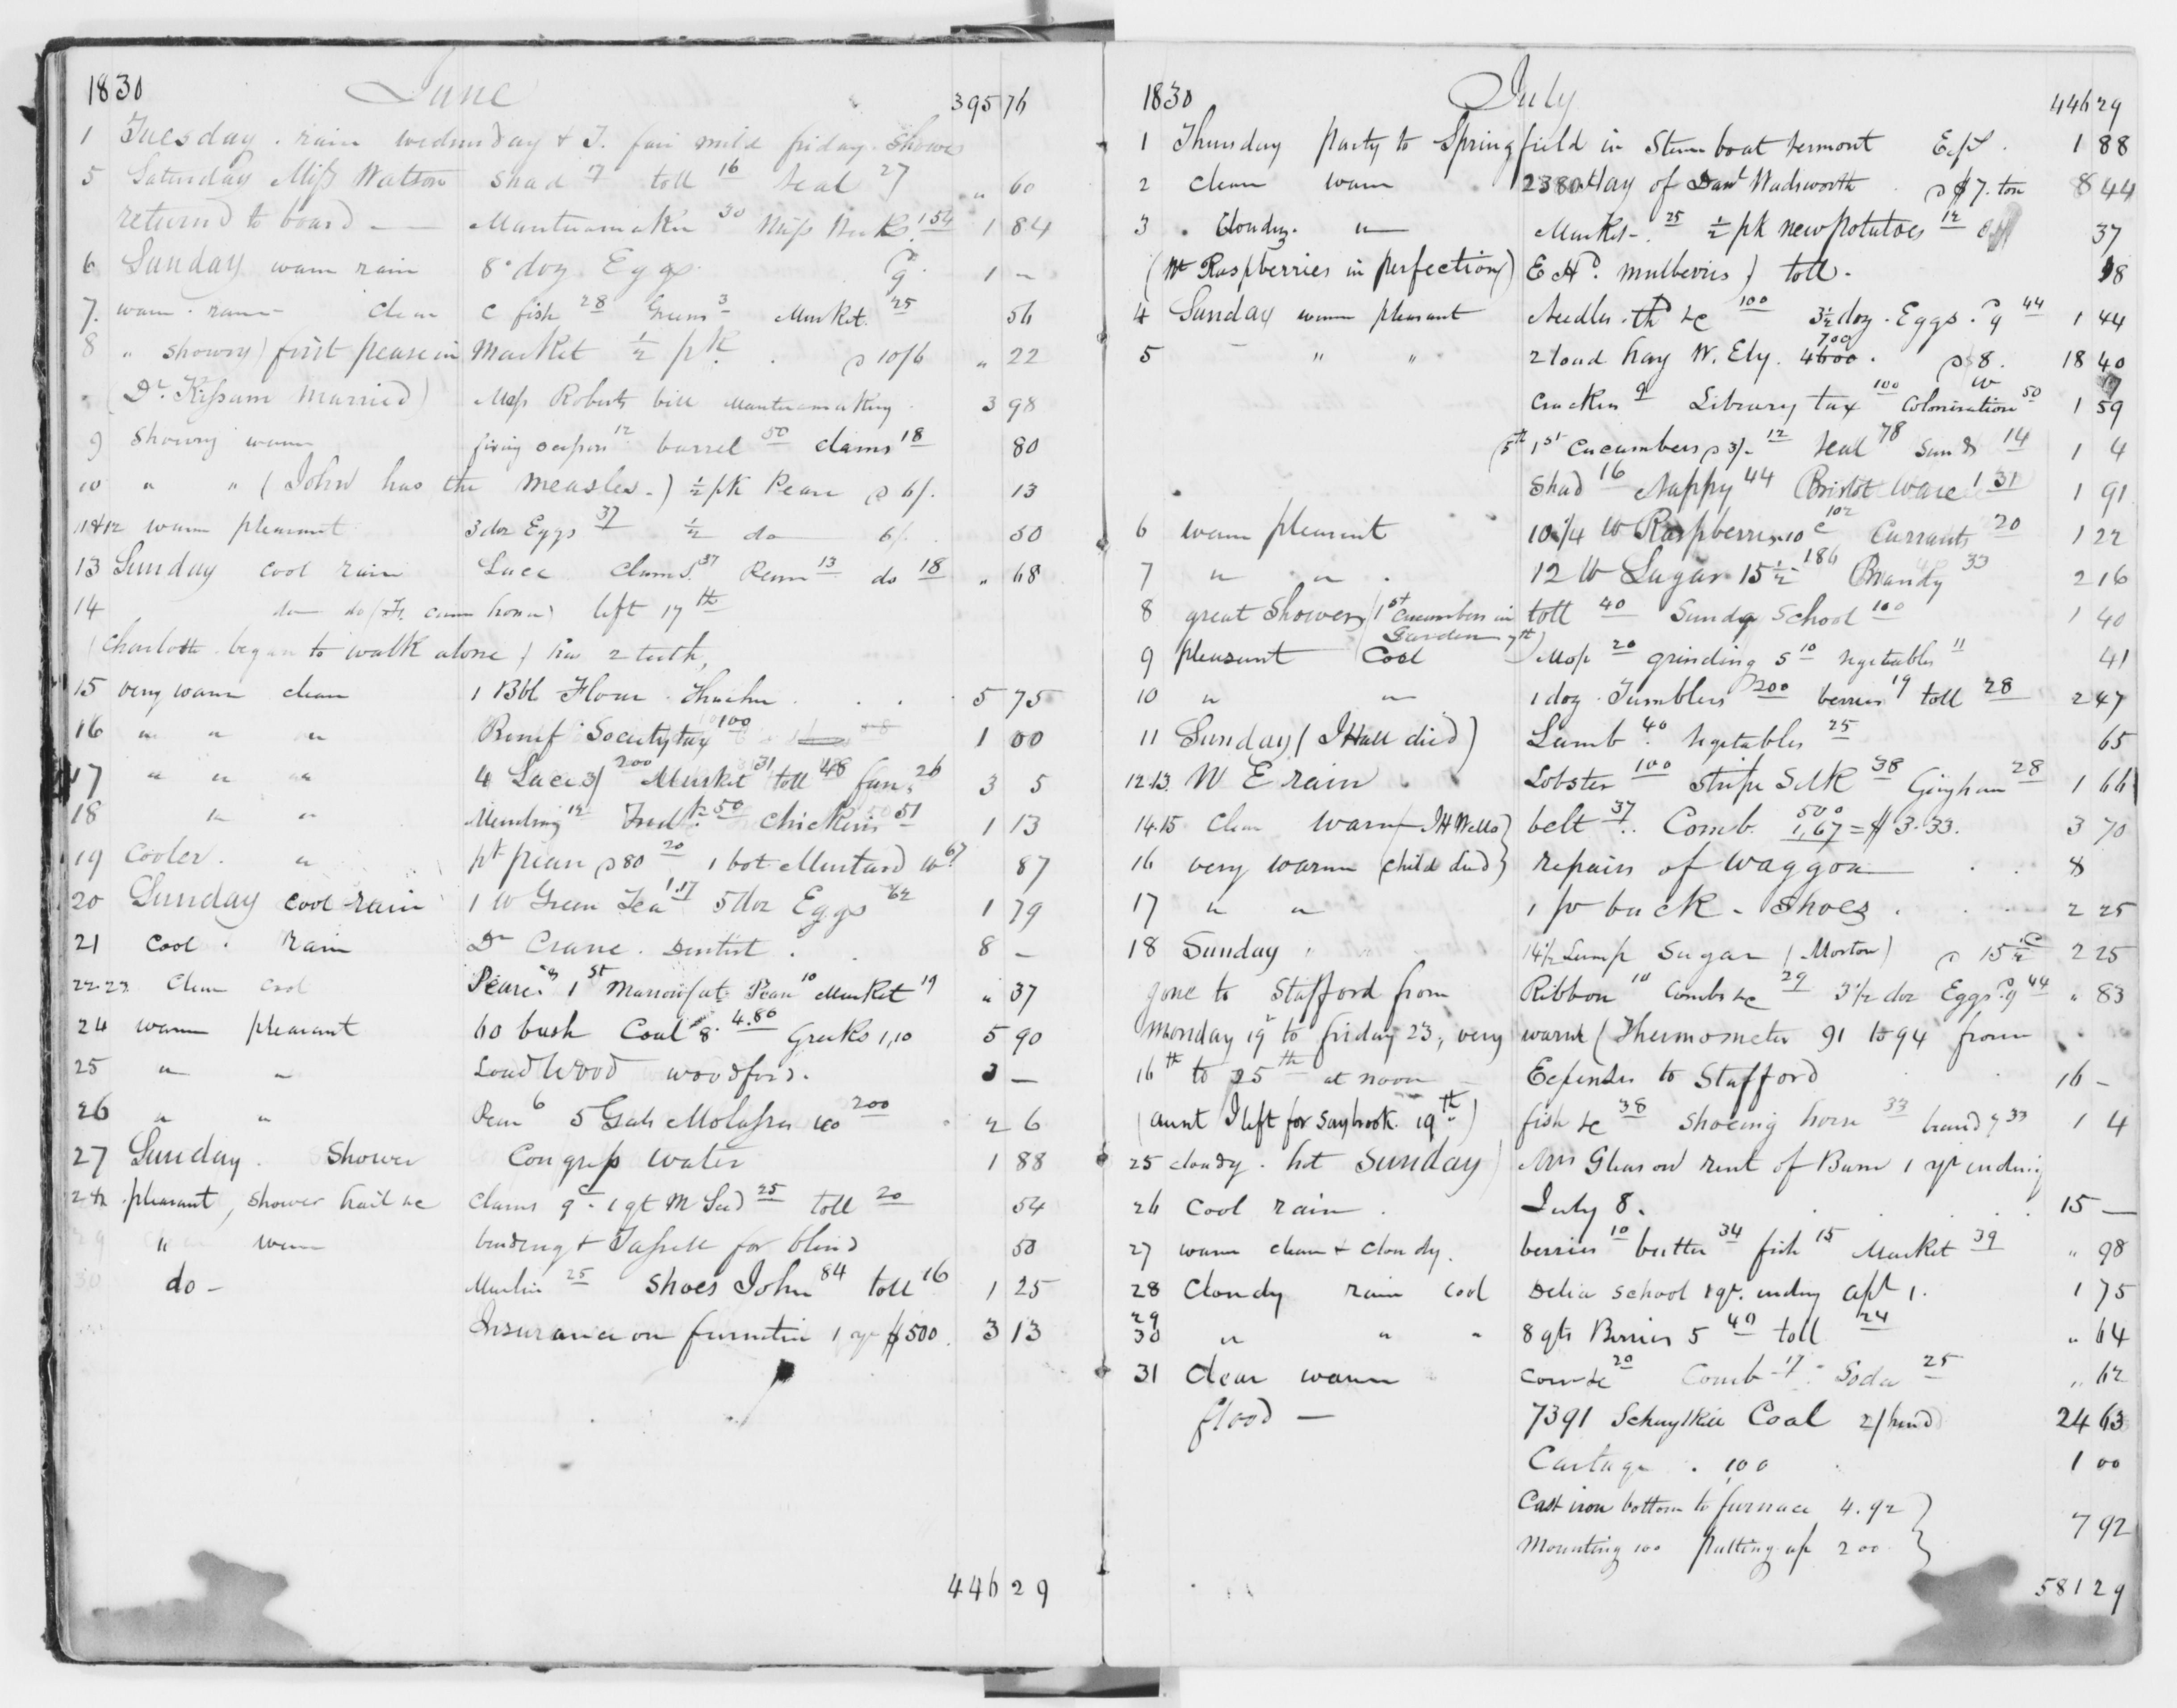 1830 June 395 76
1 Tuesday . rain wednesday & T. fair mild friday. Shower
5 Saturday Miss Watson shad 17 toll 16 Seal 27 " 60
returnd to board — Mantuamaker 30 Miss 154 1 84
6 Sunday warm rain 8 doz Eggs 1 –
7. warm . rain – clear C fish 28 Greens 3 Market. 25 56
8 " showry) first pease in Market ½ pk . 10/6 " 22
. (Dr. Kissam married) Miss Roberts bill Mantuamaking . 3 98
9 Showry warm barrel 50 clams 18 80
10 " " (John has the measles.) ½ pk Pease 6/. 13
11 & 12 warm pleasant 3 doz Eggs 37 ½ do 6/. 50
13 Sunday cool rain Lace Clams 37 Pease 13 do 18 " 68
14 do do left 17th
(Charlotte began to walk alone) has 2 teeth,
15 very warm clear 1 Bbl Flour . 5 75
16 " " " Society tax 100 1 00
17 " " " 4 Lace 3/ 200 Market 31 toll 48 fan 26 3 5
18 " " Mending 12 50 Chickens 51 1 13
19 Cooler. " pk pease 80 20 1 bot Mustard 67 87
20 Sunday cool rain 1 lb Green Tea 1.17 5 doz Eggs 62 1 79
21 Cool . rain Dr Crane . Dentist . 8 –
22.23 Clear Cool Pease 8 1st Marrowfat Peas 10 Market 19 " 37
24 warm pleasant 60 bush Coal 8 4.80 Greeks 1,10 5 90
25 " " Load Wood woodford. 3 —
26 " " Peas 6 5 Gals Molasses 40 200 2 6
27 Sunday. Shower Congress water 1 88
28 pleasant, shower hail &c Clams 9 – 1 qt M Seed 25 toll 20 54
29 " warm binding & Tassels for blind 50
30 do – Muslin 25 Shoes John 84 toll 16 1 25
Insurance on furniture 1 yr $500. 3 13
446 29
1830 July 446 29
1 Thursday party to Springfield in Steam boat Vermont Exps . 1 88
2 clear warm 2380 Hay of Danl Wadsworth $7. ton 8 44
3 . Cloudy. " Market . 25 ½ pk new potatoes 12 37
(Wt Raspberries in perfection) E Hd. mulberries) toll - 18
4 Sunday warm pleasant Needles . thd &c 100 3½ doz . Eggs . 44 1 44
5 " " 2 load hay W. Ely. 4600 . 8 . 18 40
Crackers 9 Library tax 100 Colonization 50 1 59
5th 1st Cucumbers 3/- 12 Seal 78 14 1 4
Shad 16 Nappy 44 Bristol Ware 1 31 1 91
6 warm pleasant 10¼ lb Raspberries 10 c 102 Currants 20 1 22
7 " " . 12 lb Sugar 15½ 186 Brandy 33 2 16
8 great Shower (1st Cucumbers in toll 40 Sunday School 100 1 40
Garden 7th)
9 pleasant Cool Mop 20 grinding 5 10 Vegetables 11 41
10 " " 1 doz . Tumblers 200 berries 19 toll 28 2 47
11 Sunday (J Hall died) Lamb 40 Vegetables 25 65
12.13. N E rain Lobster 100 stripe Silk 38 Gingham 28 1 66
14.15 Clear warm (J H Wells) belt 37 .. Comb. 500 1,67 = $3.33. 3 70
16 very warm (child died) repairs of waggon . . 8
17 " " 1 pr buck – shoes . 2 25
18 Sunday " 14½ Lump Sugar (Morton) 15½ c 2 25
gone to Stafford from Ribbon 10 Combs &c 29 3½ doz Eggs 44 " 83
Monday 19 to friday 23, very warm (Thermometer 91 to 94 from
16th to 25th at noon Expenses to Stafford 16 –
(aunt J left for Saybrook. 19th) fish &c 38 Shoeing horse 33 brandy 33 1 4
25 cloudy . hot Sunday) Mrs Gleason rent of Barn 1 yr ending
26 Cool rain . July 8. 15 —
27 warm clear & cloudy. berries 10 butter 34 fish 15 Market 39 " 98
28 Cloudy rain Cool Delia School 1 qr. ending apl 1. 1 75
29
30 " " " 8 qts Berries 5 40 toll 24 " 64
31 Clear warm 20 Comb 17 . Soda 25 " 62
flood — 7391 Schuylkill Coal 24 63
Cartage . 100 1 00
Cast iron bottom to furnace 4.92
Mounting 100 putting up 200 7 92
581 29